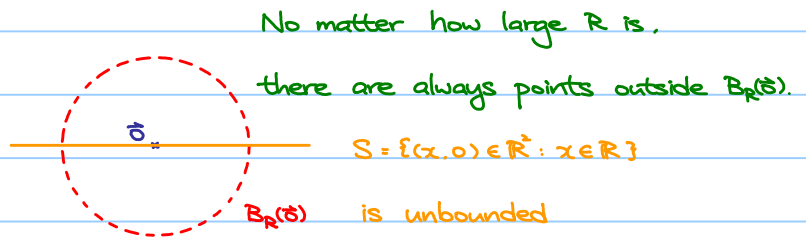 No matter how large R is,
there are always points outside B_R(\vec{o}).
\vec{o}
S = {(x, 0) ∈ ℝ² : x ∈ ℝ}
B_R(\vec{o}) is unbounded